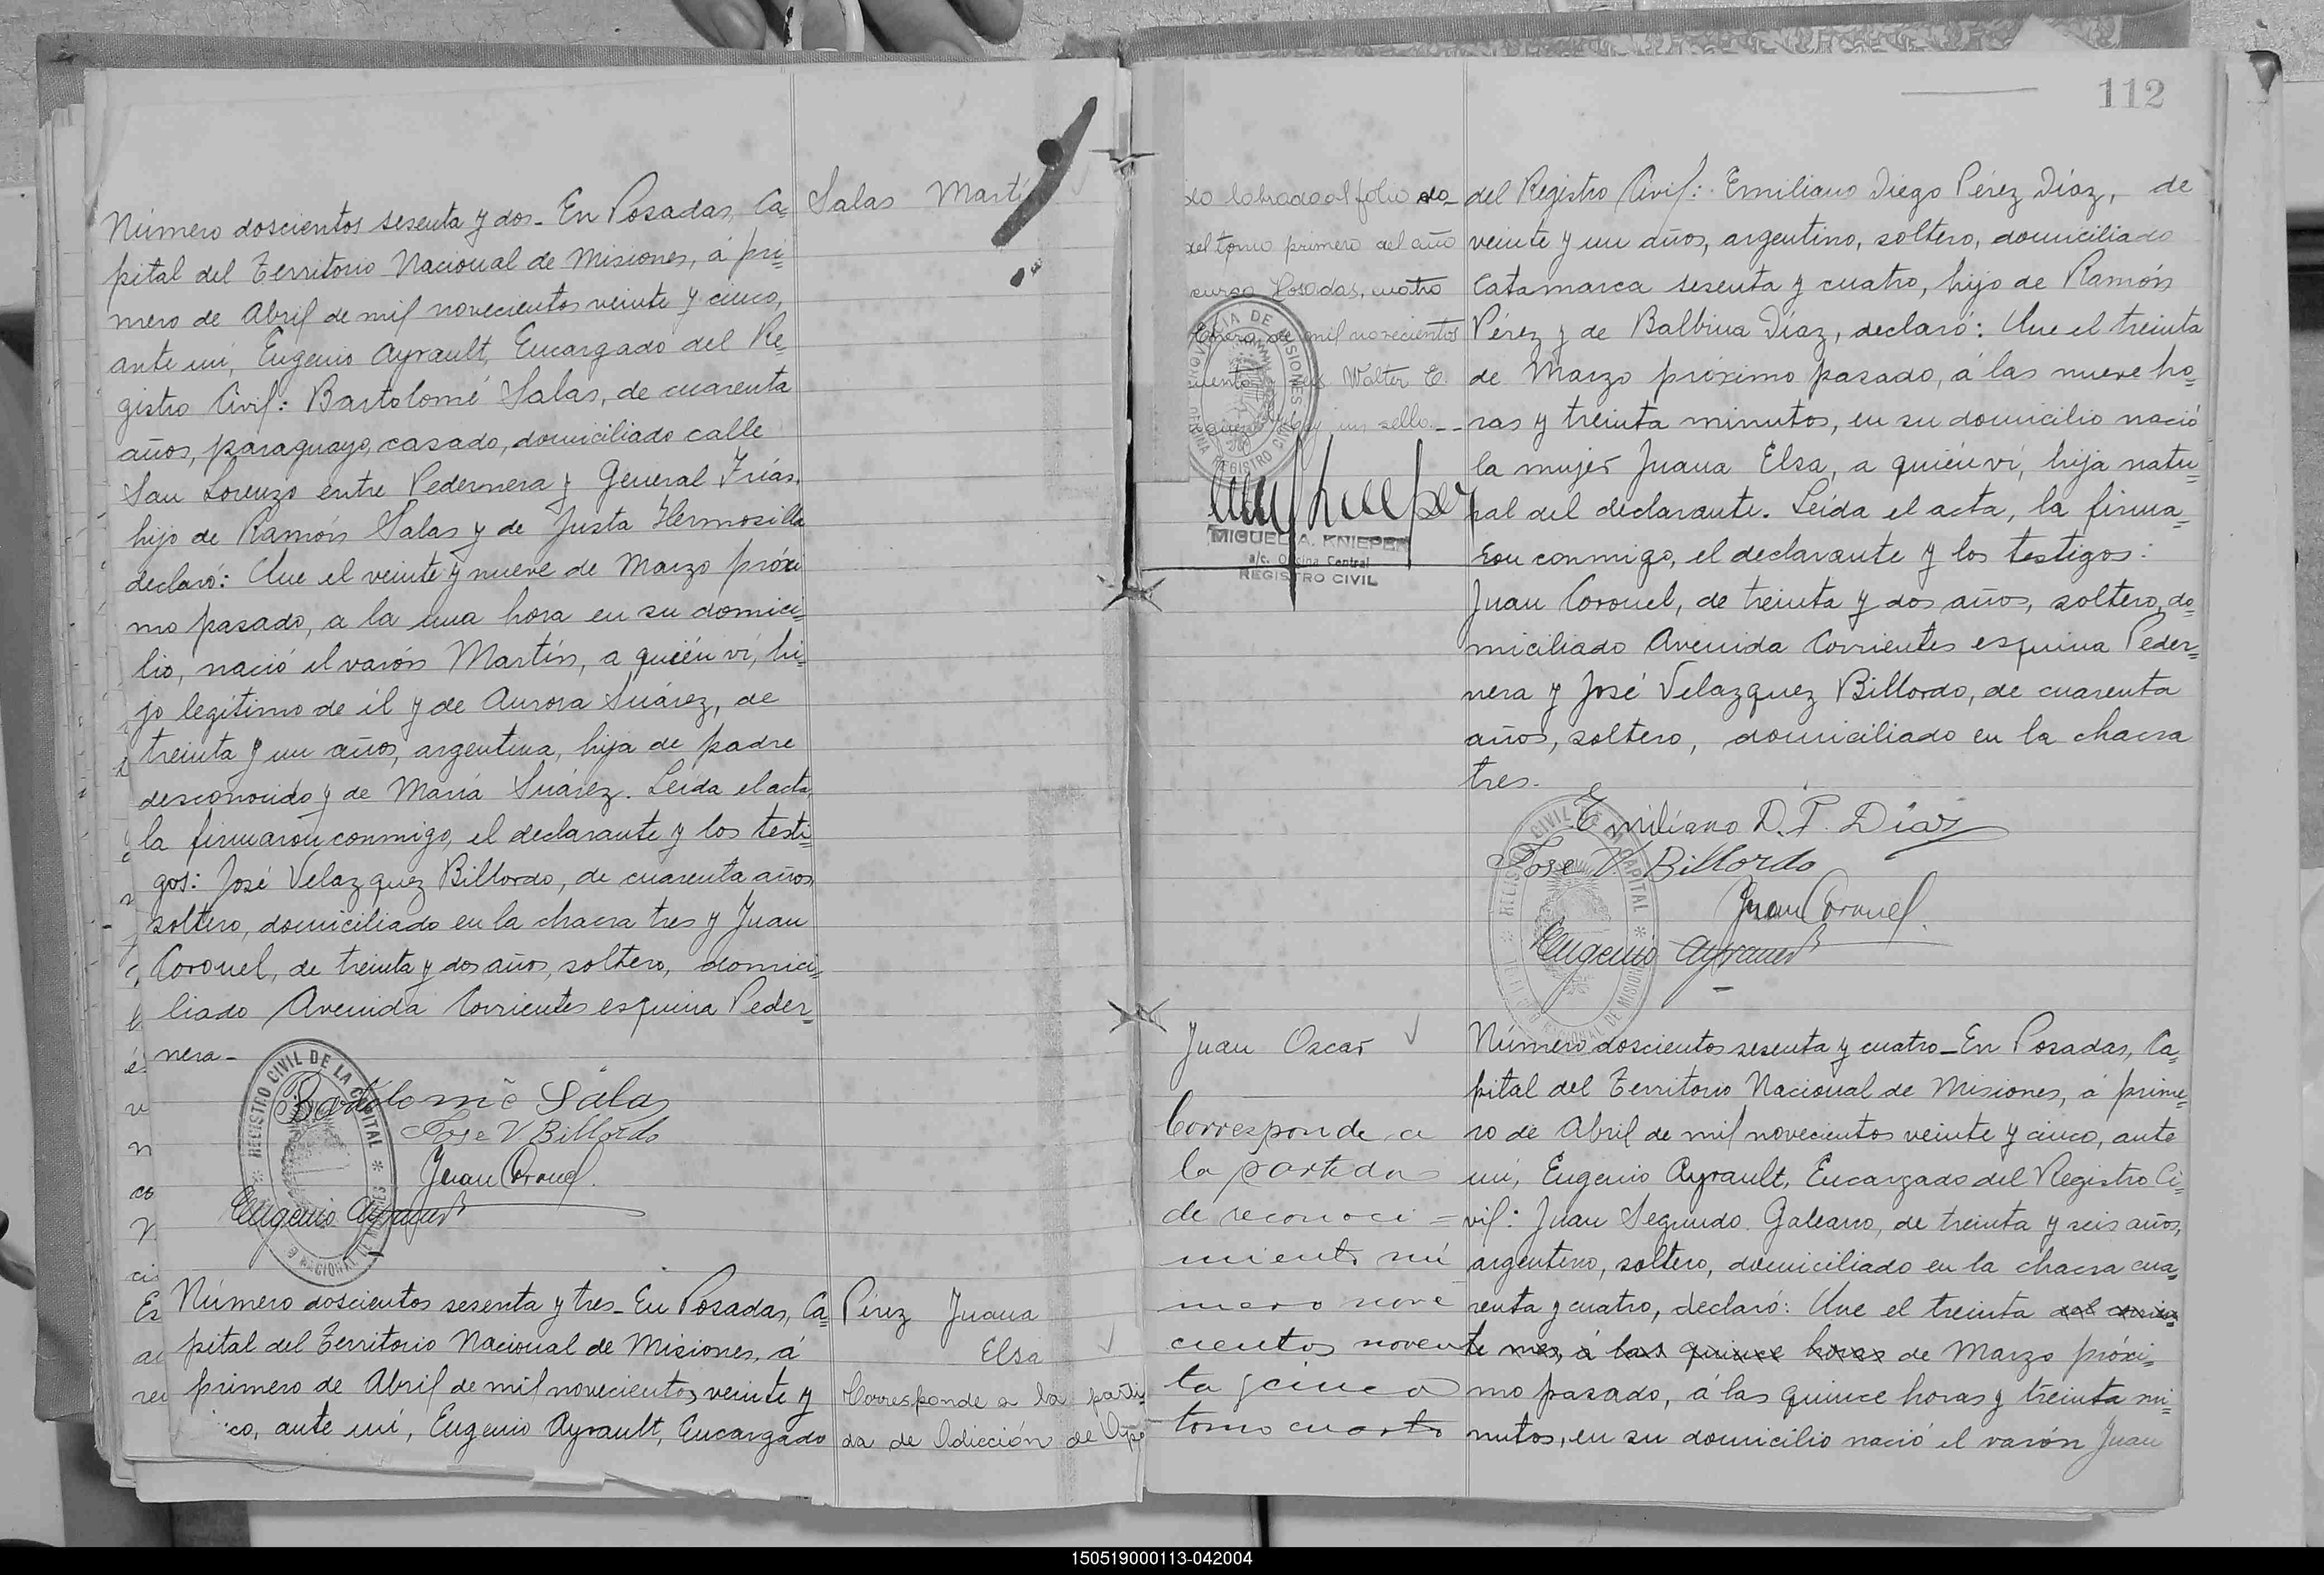 Número doscientos sesenta y dos_ En Posadas, Ca=
pital del Territorio Nacional de Misiones, á pri=
mero de Abril de mil novecientos veinte y cinco,
ante mí, Eugenio Ayrault, Encargado del Re=
gistro Civil: Bartolomé Salas, de cuarenta
años, paraguayo, casado, domiciliado calle
San Lorenzo entre Pedernera y General Frías,
hijo de Ramón Salas y de Justa Hermosilla
declaró: Que el veinte y nueve de Marzo próxi
mo pasado, a la una hora en su domici=
lio, nació el varón Martín, a quién ví, hi=
jo legítimo de él y de Aurora Suárez, de
treinta y un años, argentina, hija de padre
desconocido y de María Suárez. Leída el acta,
la firmaron conmigo, el declarante y los testi=
gos: José Velazquez Billordo, de cuarenta años,
soltero, domiciliado en la chacra tres y Juan
Coronel, de treinta y dos años, soltero, domici=
liado Avenida Corrientes esquina Peder=
nera_
Bartolomé Salas
Jose V Billordo
Juan Coronel.
Eugenio Ayrault
REGISTRO CIVIL DE LA CAPITAL
Salas Martín
Número doscientos sesenta y tres_ En Posadas, Ca=
pital del Territorio Nacional de Misiones, á
primero de Abril de mil novecientos veinte y
co, ante mí, Eugenio Ayrault, Encargado
Pérez Juana
Elsa
Corresponde a la parti=
da de Adicción de
112
do labrado al folio
del tomo primero del año
curso Posadas, cuatro
Enero de mil novecientos
Walter E.
un sello_ _
PROVINCIA DE MISIONES
REGISTRO CIVIL
MIGUEL A. KNIEPER
a/c. Oficina Central
REGISTRO CIVIL
del Registro Civil: Emiliano Diego Pérez Díaz, de
veinte y un años, argentino, soltero, domiciliado
Catamarca sesenta y cuatro, hijo de Ramón
Pérez y de Balbina Díaz, declaró: Que el treinta
de Marzo próximo pasado, á las nueve ho=
ras y treinta minutos, en su domicilio nació
la mujer Juana Elsa, a quién ví, hija natu=
ral del declarante. Leída el acta, la firma=
ron conmigo, el declarante y los testigos:
Juan Coronel, de treinta y dos años, soltero, do=
miciliado Avenida Corrientes esquina Peder=
nera y José Velazquez Billordo, de cuarenta
años, soltero, domiciliado en la chacra
tres.
Emiliano D. P. Díaz
Jose V. Billordo
Juan Coronel.
Eugenio Ayrault
Juan Oscar
Corresponde a
la partida
de reconoci=
miento nú
mero nove
cientos noven
ta y cinco
tomo cuarto
Número doscientos sesenta y cuatro_ En Posadas, Ca=
pital del Territorio Nacional de Misiones, á prime=
ro de Abril de mil novecientos veinte y cinco, ante
mí, Eugenio Ayrault, Encargado del Registro Ci=
vil: Juan Segundo Galeano, de treinta y seis años,
argentino, soltero, domiciliado en la chacra cua=
renta y cuatro, declaró: Que el treinta del corrien=
te mes, á las quince horas de Marzo próxi=
mo pasado, á las quince horas y treinta mi=
nutos, en su domicilio nació el varón Juan
150519000113-042004